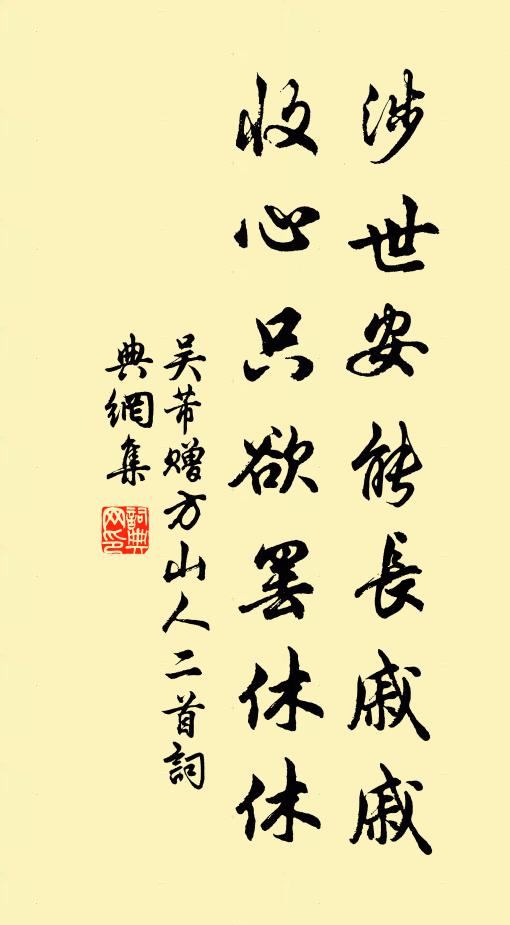 涉世安能長戚戚
收心只欲罷休休
吴芾赠方山人二首詞
典網集
詞典
网印